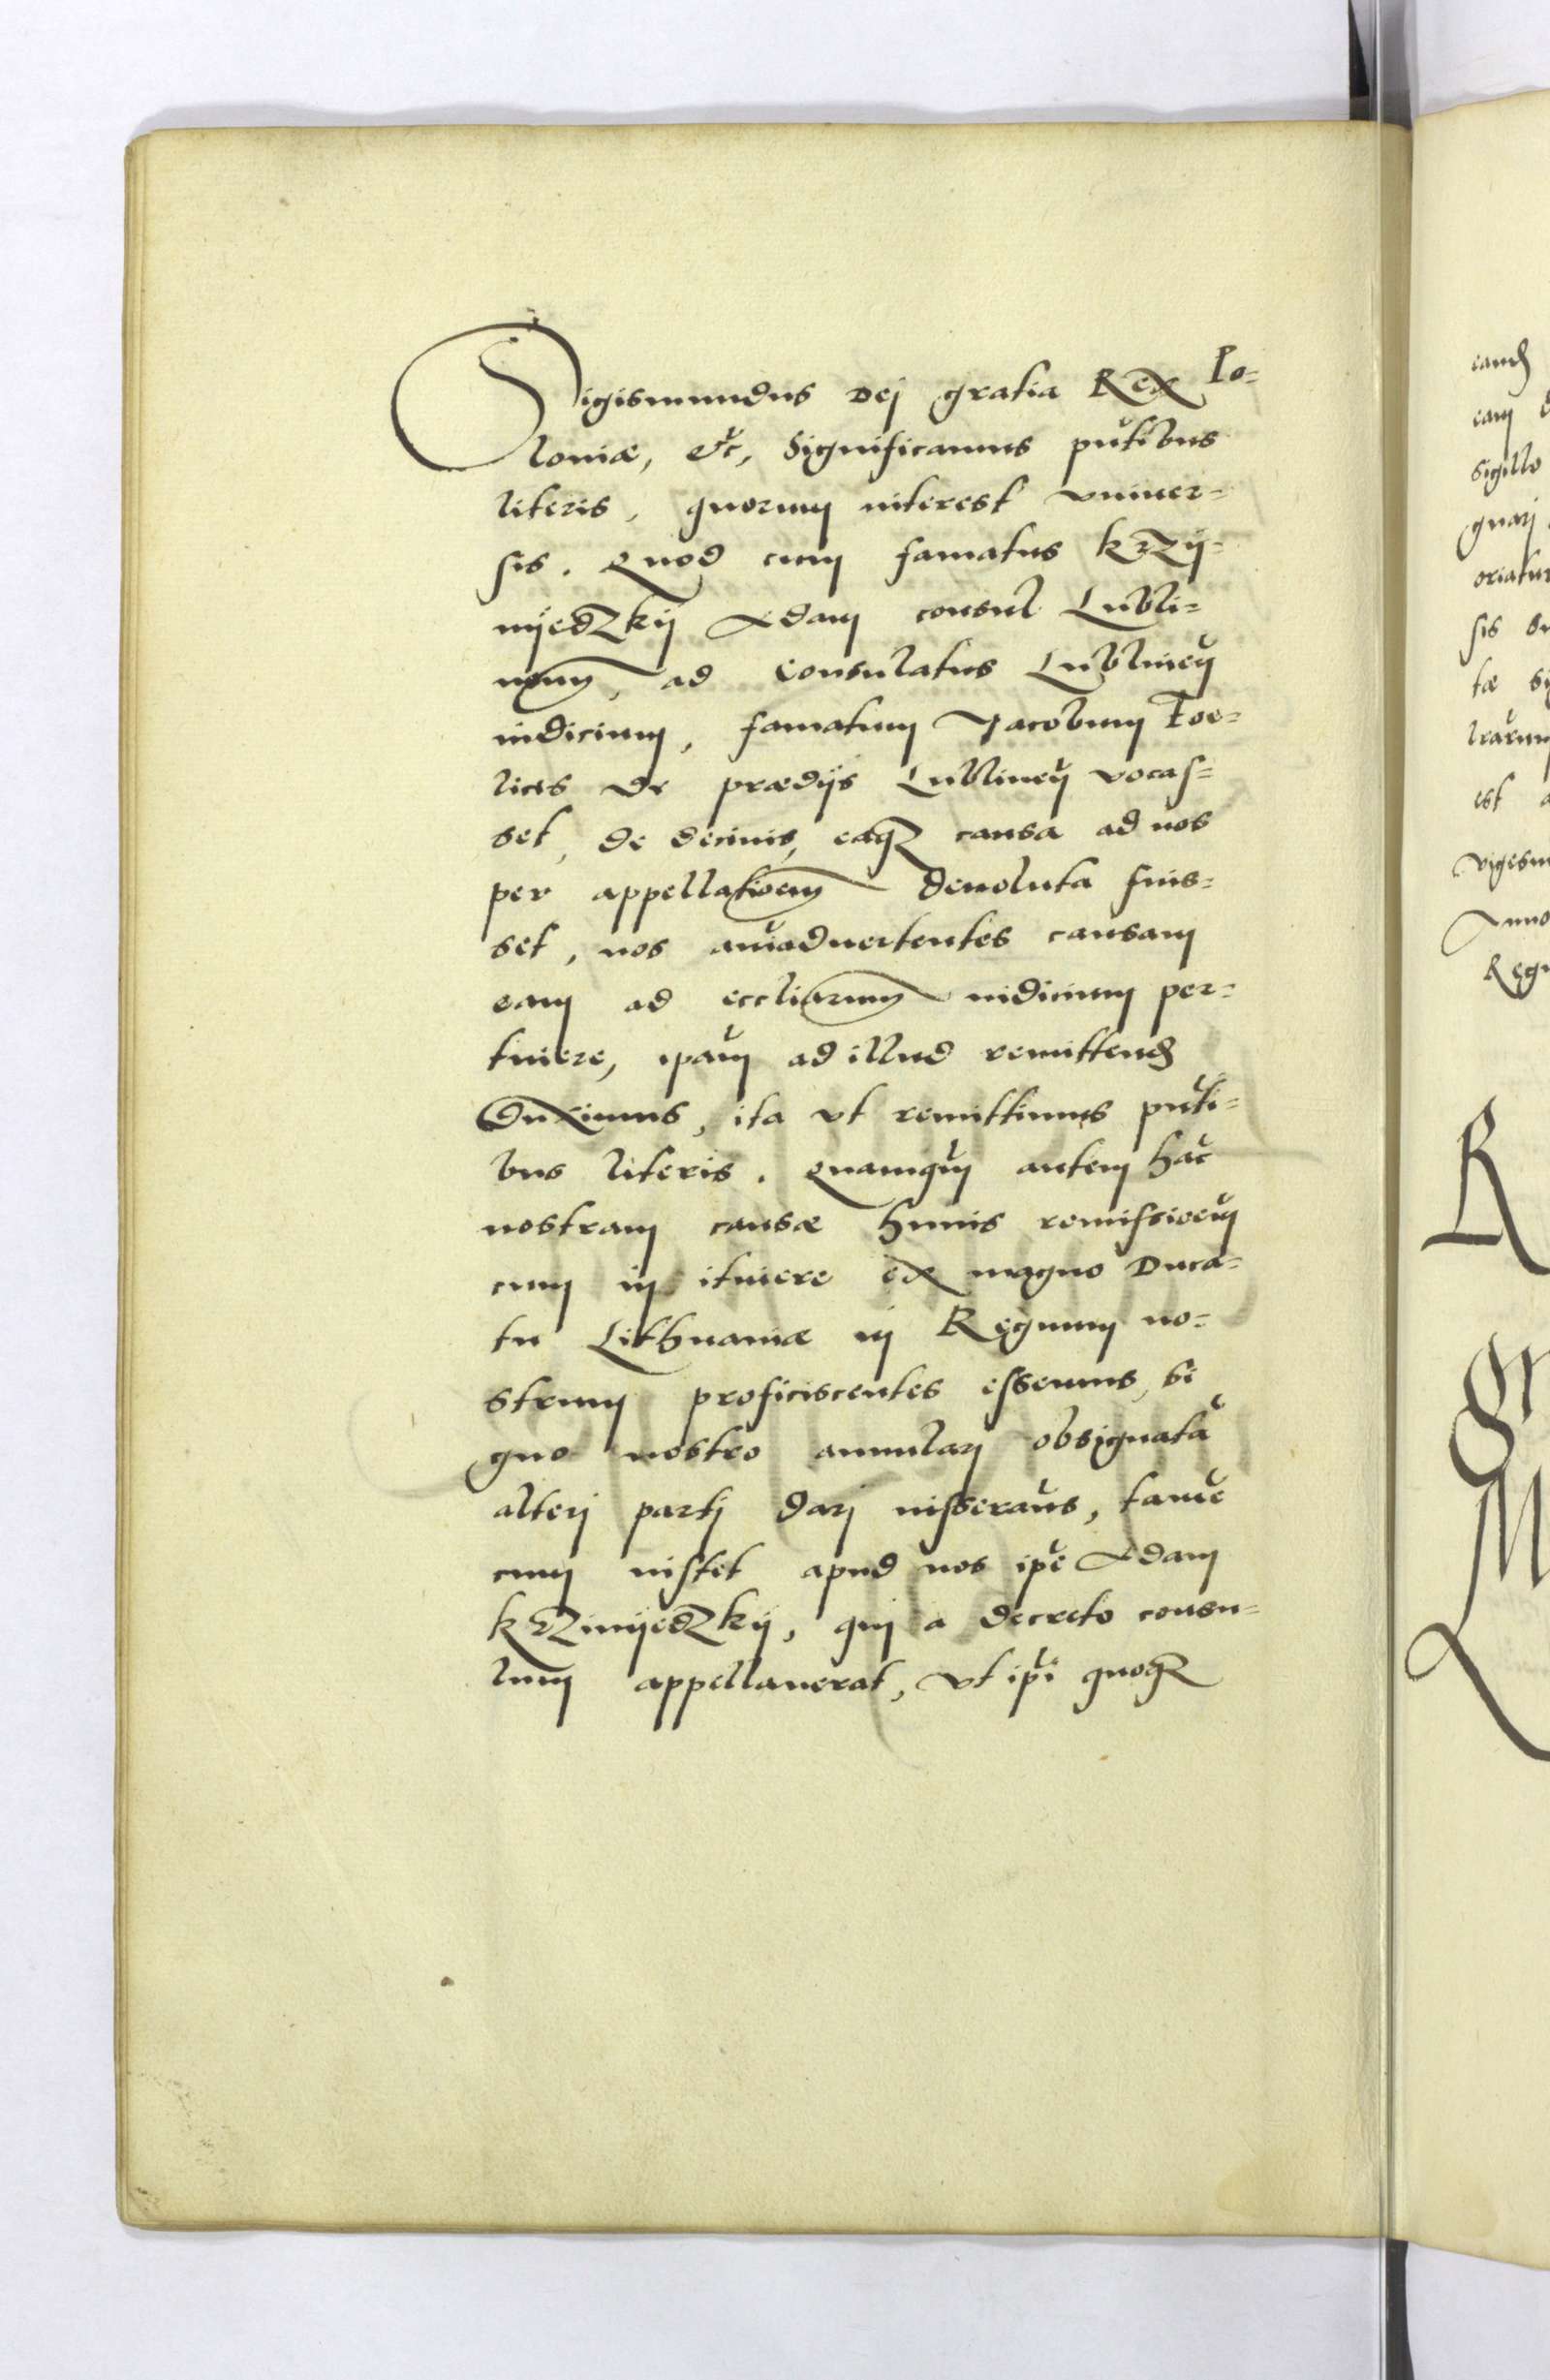 Sigismundus Dej gratia Rex Po-
loniæ, etc, Significamus pñtibus
literis, quorum interest vniuer-
sis. Quod cum famatus krzij-
mijedzkij Adam consul Lubli-
nen, ad Consulatus Lublineñ
iudicium, famatum Jacobum
lices de prædijs Lublineñ vocas-
set, de decimis, eaq causa ad nos
per appellationem deuoluta fuis-
set, nos aniaduertentes causam
eam ad eccliarum iudicium per-
tinere, ipam ad illud remittend
duximus, ita vt remittimus pñti-
bus literis. Quamquam autem hāc
nostram causæ huius remissioem
cum in itinere ex magno Duca-
tu Lithuaniæ in Regnum no-
strum proficiscentes essemus, si
gno nostro annulari obsignatā
alterj partj darj iusseraũs, tamē
cum instet apud nos ipe Adam
krzimijedzkij, quj a decreto consu-
lum appellauerat, vt ipi quoq
eand
eam
Sigillo
oriatur
sis
tæ
est
Anno